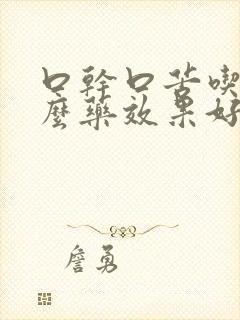 口幹口苦喫
麼藥效果好
詹勇